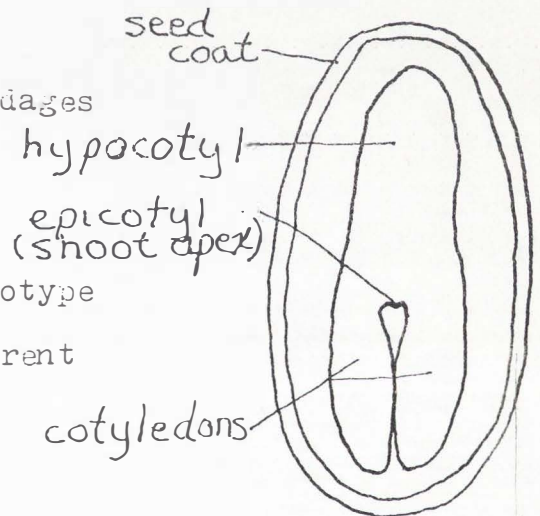 seed
coat
dages
hypocotyl
epicotyl
(shoot apex)
otype
rent
cotyledons